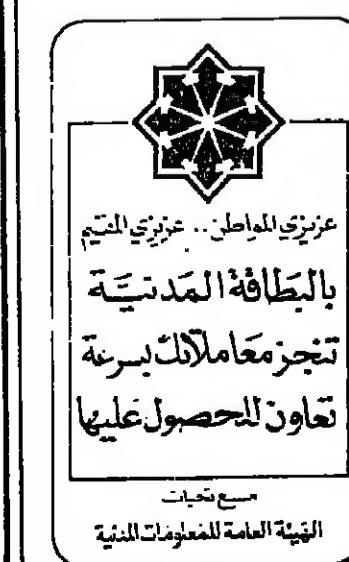 عزيزي المواطن.. عزيزي المقيم
بالبطاقة المدنية
تنجز معاملاتك بسرعة
تعاون للحصول عليها
مع تحيات
الهيئة العامة للمعلومات المدنية